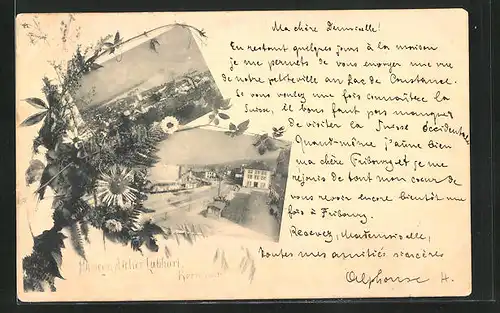 Ma chère Demoiselle!
En restant quelques jours à la maison
je me permets de vous envoyer une vue
de notre petite ville au Lac de Constance.
Si vous voulez une fois connaître la
Suisse, il vous faut pas manquer
de visiter la Suisse occidentale
Quand-même j'aime bien
ma chère Fribourg et je me
rejouis de tout mon cœur de
vous revoir encore bientôt une
fois à Fribourg.
Recevez, Mademoiselle,
toutes mes amitiés sincères
Alphonse H.
Rorschach